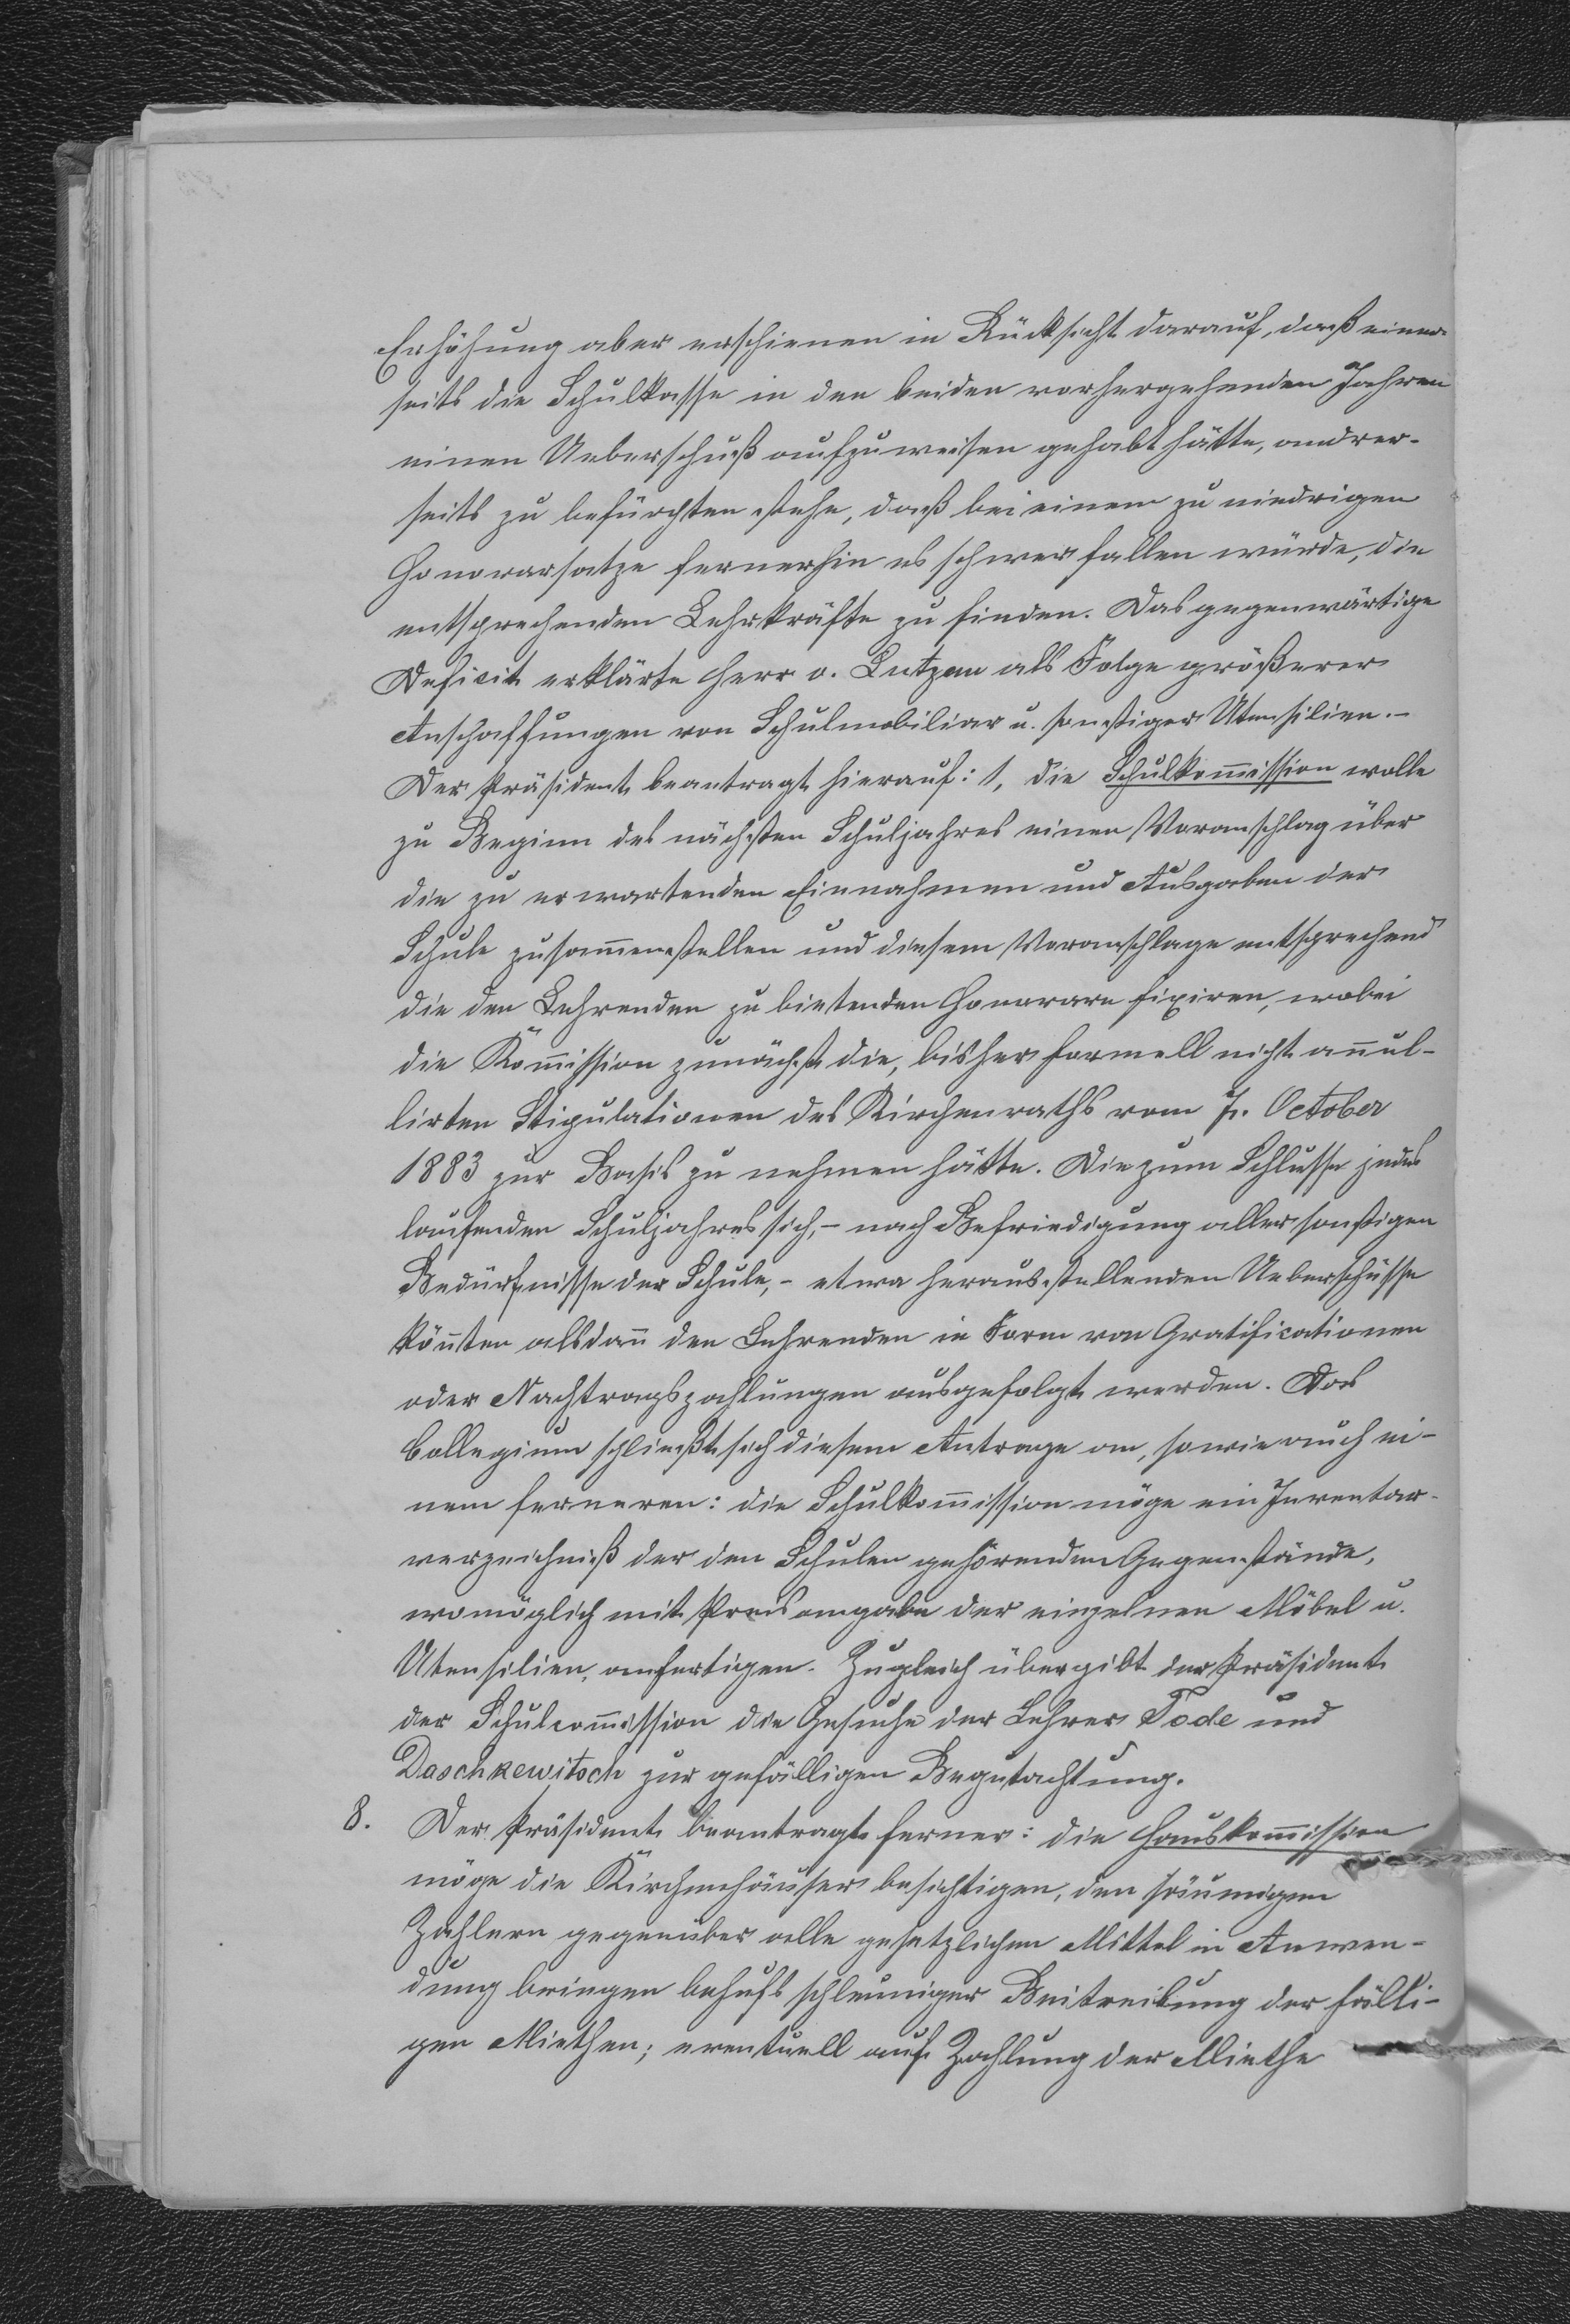 Erhöhung aber erschienen in Rücksicht darauf, daß einer-
seits die Schulkasse in den beiden vorhergehenden Jahren
einen Ueberschuß aufzuweisen gehabt hätte, andrer-
seits zu befürchten stehe, daß bei einem zu niedrigen
Honorarsatze fernerhin es schwer fallen würde, die
entsprechenden Lehrkräfte zu finden. Das gegenwärtige
Deficit erklärte Herr v. Lutzau als Folge größerer
Anschaffungen von Schulmobiliar u. sonstiger Utensilien.-
Der Präsident beantragt hierauf: 1, die Schulkom̄ission wolle
zu Beginn des nächsten Schuljahres einen Voranschlag über
die zu erwartenden Einnahmen und Ausgaben der
Schule zusam̄enstellen und diesem Voranschlage entsprechend
die den Lehrenden zu bietenden Honorare fixiren, wobei
die Kom̄ission zunächst die, bisher formell nicht an̄ul-
lirten Stipulationen des Kirchenraths vom 7. October
1883 zur Basis zu nehmen hätte. Die zum Schlusse jedes
laufenden Schuljahres sich,- nach Befriedigung aller sonstigen
Bedürfnisse der Schule,- etwa herausstellenden Ueberschüsse
kön̄ten alsdan̄ den Lehrenden in Form von Gratificationen
oder Nachtragszahlungen ausgefolgt werden. Das
Collegium schließt sich diesem Antrage an, sowie auch ei-
nem ferneren: die Schulkom̄ission möge ein Inventar-
verzeichniß der den Schulen gehörenden Gegenstände,
womöglich mit Preisangabe der einzelnen Möbel u.
Utensilien, anfertigen. Zugleich übergibt der Präsident
der Schulcom̄ission die Gesuche der Lehrer Tode und
Daschkewitsch zur gefälligen Begutachtung.
8. Der Präsident beantragt ferner: die Hauskom̄ission
möge die Kirchenhäuser besichtigen, den säumigen
Zahlern gegenüber alle gesetzlichen Mittel in Anwen-
dung bringen behufs schleuniger Beitreibung der fälli-
gen Miethen; eventuell auf Zahlung der Miethe